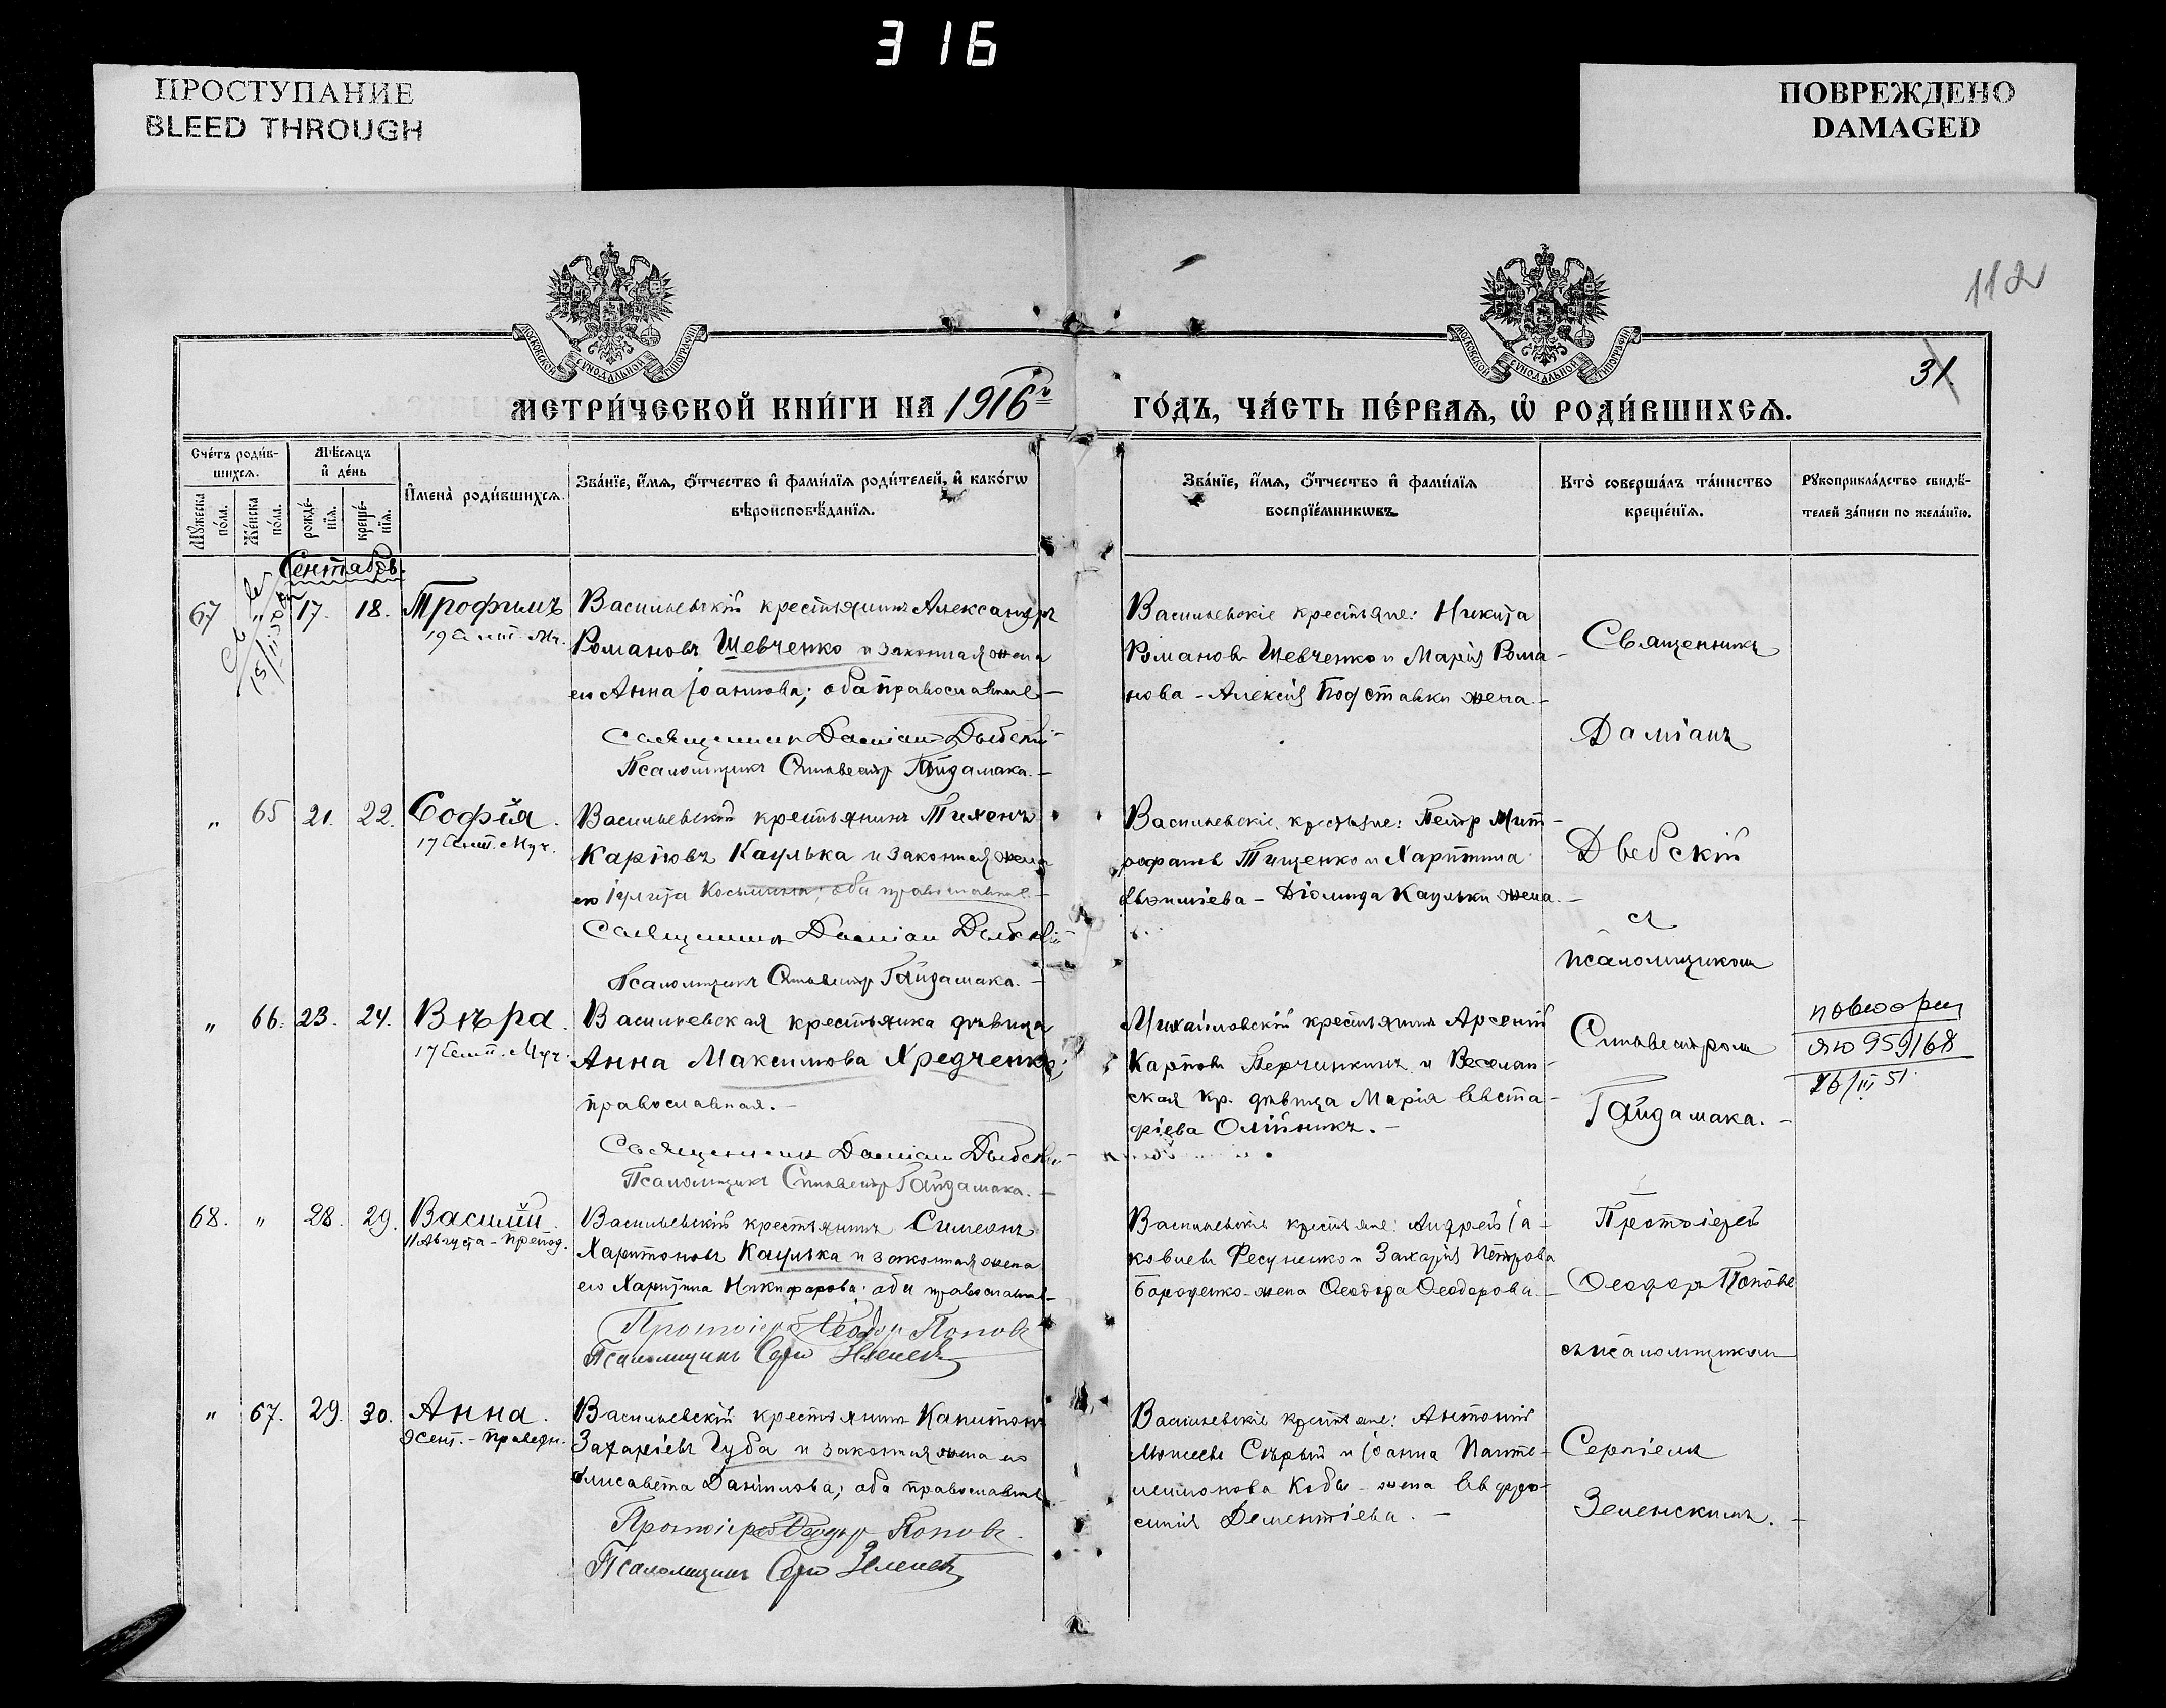 316
ПРОСТУПАНИЕ
BLEED THROUGH
ПОВРЕЖДЕНО
DAMAGED
112
МОСКОВСКОЙ СѴНОДАЛЬНОЙ ТИПОГРАФІИ
МОСКОВСКОЙ СѴНОДАЛЬНОЙ ТИПОГРАФІИ
31
МЕТРИ́ЧЕСКОЙ КНИ́ГИ НА 1916й ГО́ДЪ, ЧА́СТЬ ПЕ́РВАѦ, Ѽ РОДИ́ВШИХСѦ.
Сче́тъ роди́в-
шихсѧ.
Мꙋжеска по́ла.
Же́нска по́ла.
Мѣ́сѧцъ
и҆ де́нь
рожде́-
нїѧ.
креще́-
нїѧ.
И҆мена̀ роди́вшихсѧ.
Зва́нїе, и҆́мѧ, ѻ҆́тчество и҆ фами́лїѧ роди́телей, и҆ како́гѡ
вѣроисповѣ́данїѧ.
Зва́нїе, и҆́мѧ, ѻ҆́тчество и҆ фами́лїѧ
воспрїе́мникѡвъ
Кто̀ соверша́лъ та́инство
креще́нїѧ.
Рꙋкоприкла́дство свидѣ́-
телей за́писи по жела́нїю.
Сентябрь.
67 „ 17. 18. Трофимъ
19 Сент. Мч.
Васильевскій крестьянинъ Александръ
Романовъ Шевченко и законная жена
его Анна Іоаннова; оба православные
Священникъ Даміанъ Дзебскій
Псаломщикъ Сильвестръ Гайдамака.
Васильевскіе крестьяне: Никита
Романовъ Шевченко и Марія Рома-
нова - Алексія Подставки жена.
Священникъ
Даміанъ
„ 65 21. 22. Софія.
17 Сент. Муч.
Васильевскій крестьянинъ Тихонъ
Карповъ Каулька и законная жена
его Іулита Косьмина; оба православные
Священникъ Даміанъ
Псаломщикъ Сильвестръ Гайдамака.
Васильевскіе крестьяне: Петръ Мит-
рофановъ Тищенко и Харитина
Каульки жена.
съ
псаломщикомъ
„ 66. 23. 24. Вѣра.
17 Сент. Муч.
Васильевская крестьянка дѣвица
Анна Максимова Хредченко;
православная.
Священникъ Даміанъ
Псаломщикъ Сильвестръ Гайдамака.
Михайловскій крестьянинъ Арсеній
Карповъ Перчинкинъ и Веселян-
ская кр. дѣвица Марія Евста-
фіева Олійникъ.
Сильвестромъ
Гайдамака.
повтори
ЯЮ 959168
26/III 51
68. „ 28. 29. Василій.
11 Августа - Препод.
Васильевскій крестьянинъ Симеонъ
Харитоновъ Каулька и законная жена
его Харитина Никифорова; оба православные
Протоіерей Ѳеодоръ Поповъ
Псаломщикъ
Васильевскіе крестьяне: Андрей Іа-
ковлевъ Фесуненко и Захарія Петрова
жена Ѳеодора Ѳеодорова.
Протоіерей
Ѳеодоръ Поповъ
съ псаломщикомъ
„ 67. 29. 30. Анна.
9 Сент. - Праведн.
Васильевскій крестьянинъ Капитонъ
Захаріевъ Губа и законная жена его
Елисавета Даніилова; оба православные
Протоіерей Ѳеодоръ Поповъ.
Псаломщикъ
Васильевскіе крестьяне: Антоній
Моисеевъ Сѣрый и Іоанна Панте-
леимонова Кобы жена Евдо-
Дементіева.
Сергіемъ
Зеленскимъ.